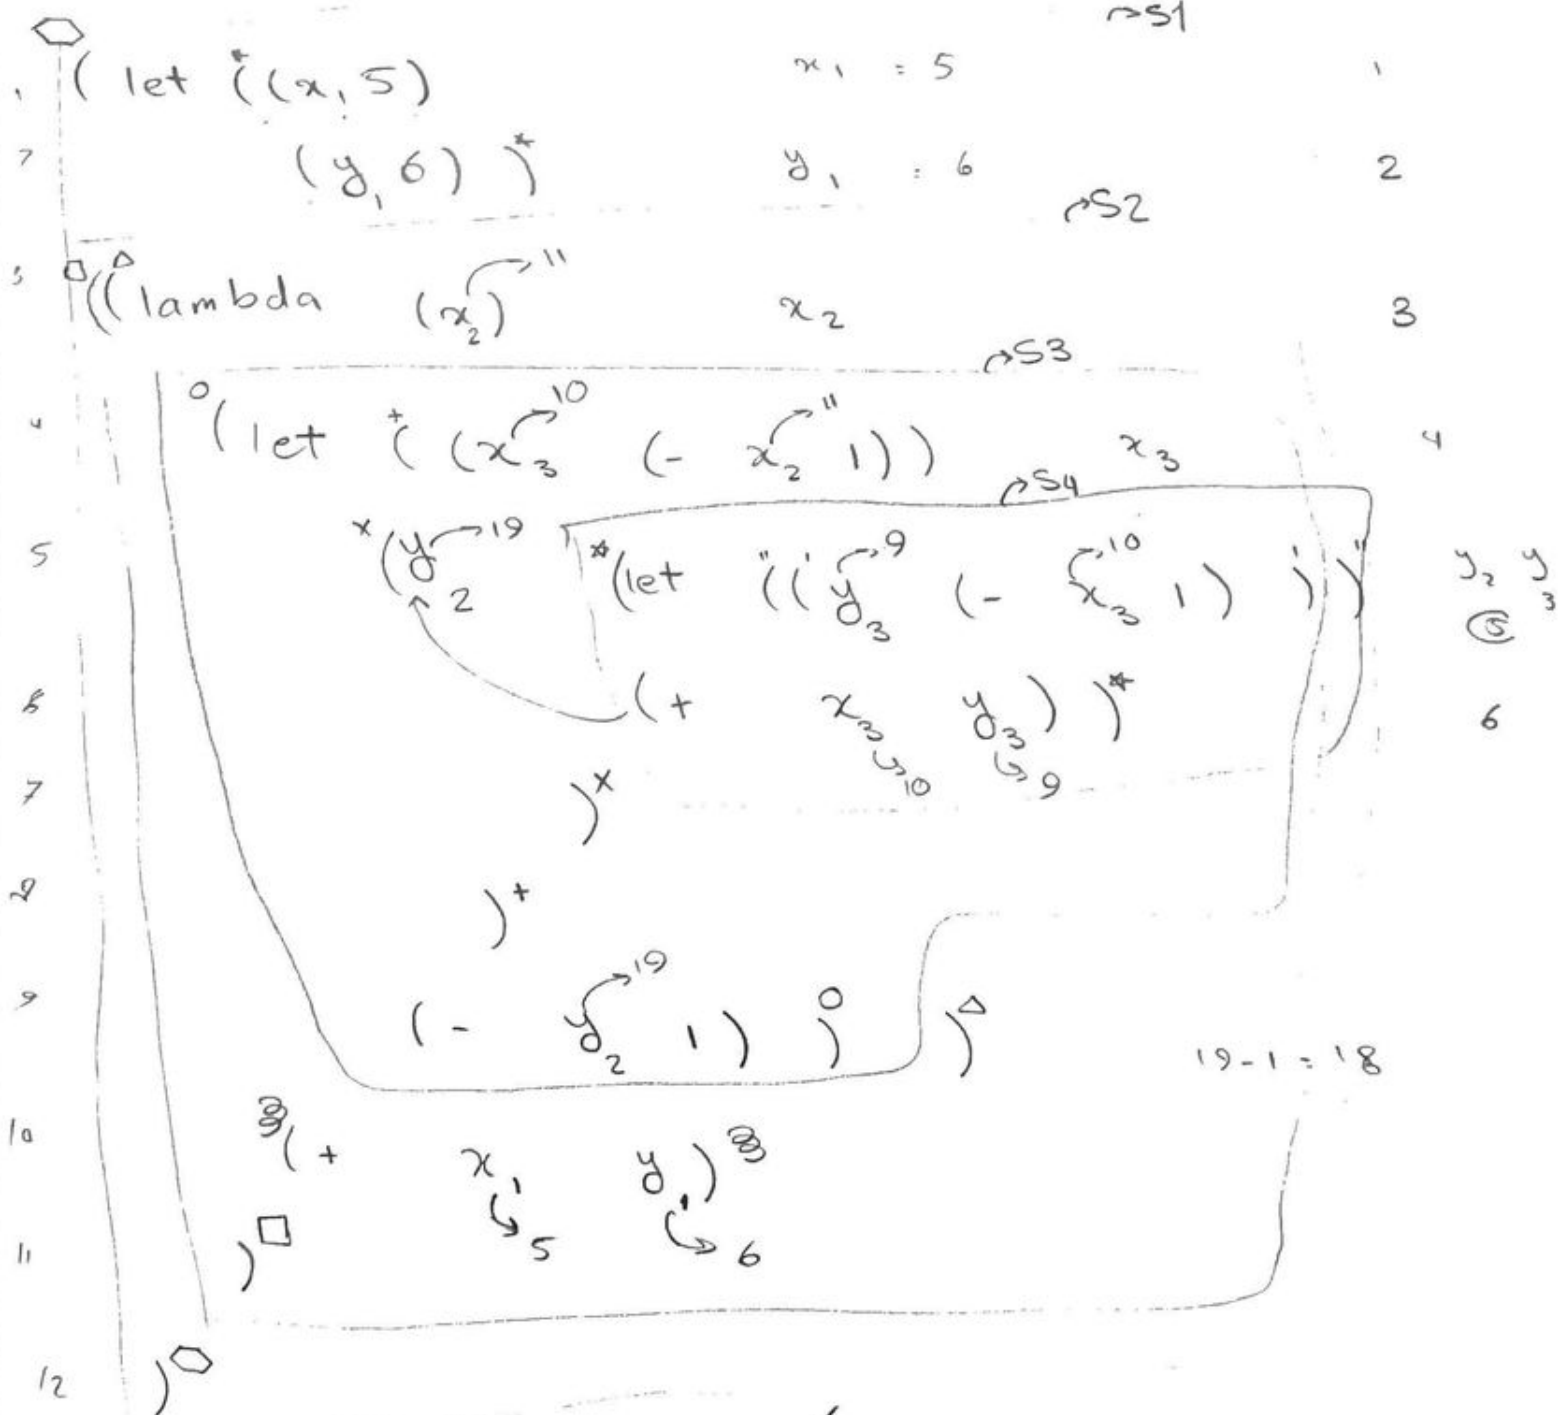 →S1
1 ( let *((x₁ 5) x₁ : 5 1
2 (y₁ 6) )* y₁ : 6 2
→S2
3 ((lambda (x₂)→11 x₂ 3
→S3
4 (let +( (x₃→10 (- x₂→11 1)) x₃ 4
→S4
5 x(y₂→19 *(let "(('y₃→9 (- x₃→10 1) )')" y₂ y₃ 5
6 (+ x₃→10 y₃→9) )* 6
7 )x
8 )+
9 (- y₂→19 1) ) ) 19-1 = 18
10 (+ x₁→5 y₁→6)
11 )
12 )